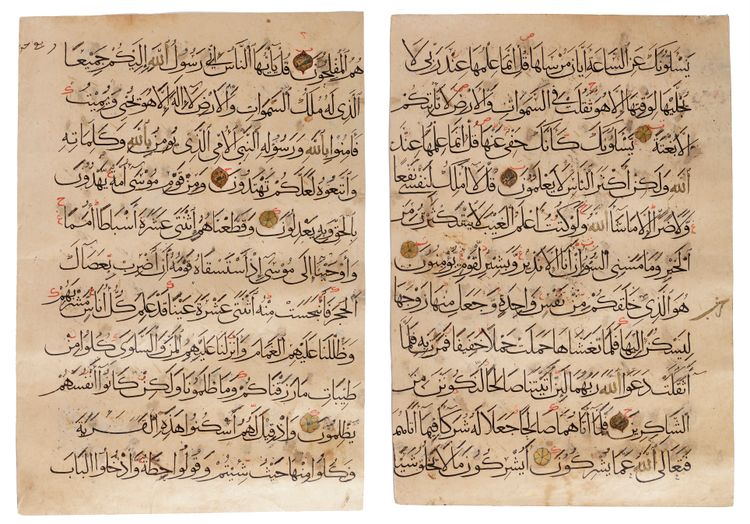 يسئلونك عن الساعة أيان مرساها قل إنما علمها عند ربي لا
يجليها لوقتها إلا هو ثقلت في السموات والأرض لا تأتيكم
إلا بغتة يسئلونك كأنك حفي عنها قل إنما علمها عند
الله ولكن أكثر الناس لا يعلمون قل لا أملك لنفسي نفعا
ولا ضرا إلا ما شاء الله ولو كنت أعلم الغيب لاستكثرت من
الخير وما مسني السوء إن أنا إلا نذير وبشير لقوم يؤمنون
هو الذي خلقكم من نفس واحدة وجعل منها زوجها
ليسكن إليها فلما تغشاها حملت حملا خفيفا فمرت به فلما
أثقلت دعوا الله ربهما لئن آتيتنا صالحا لنكونن من
الشاكرين فلما آتاهما صالحا جعلا له شركاء فيما آتاهما
فتعالى الله عما يشركون أيشركون ما لا يخلق شيئا
هم المفلحون قل يا أيها الناس إني رسول الله إليكم جميعا
الذي له ملك السموات والأرض لا إله إلا هو يحيي ويميت
فآمنوا بالله ورسوله النبي الأمي الذي يؤمن بالله وكلماته
واتبعوه لعلكم تهتدون ومن قوم موسى أمة يهدون
بالحق وبه يعدلون وقطعناهم اثنتي عشرة أسباطا أمما
وأوحينا إلى موسى إذ استسقاه قومه أن اضرب بعصاك
الحجر فانبجست منه اثنتا عشرة عينا قد علم كل أناس مشربهم
وظللنا عليهم الغمام وأنزلنا عليهم المن والسلوى كلوا من
طيبات ما رزقناكم وما ظلمونا ولكن كانوا أنفسهم
يظلمون وإذ قيل لهم اسكنوا هذه القرية
وكلوا منها حيث شئتم وقولوا حطة وادخلوا الباب